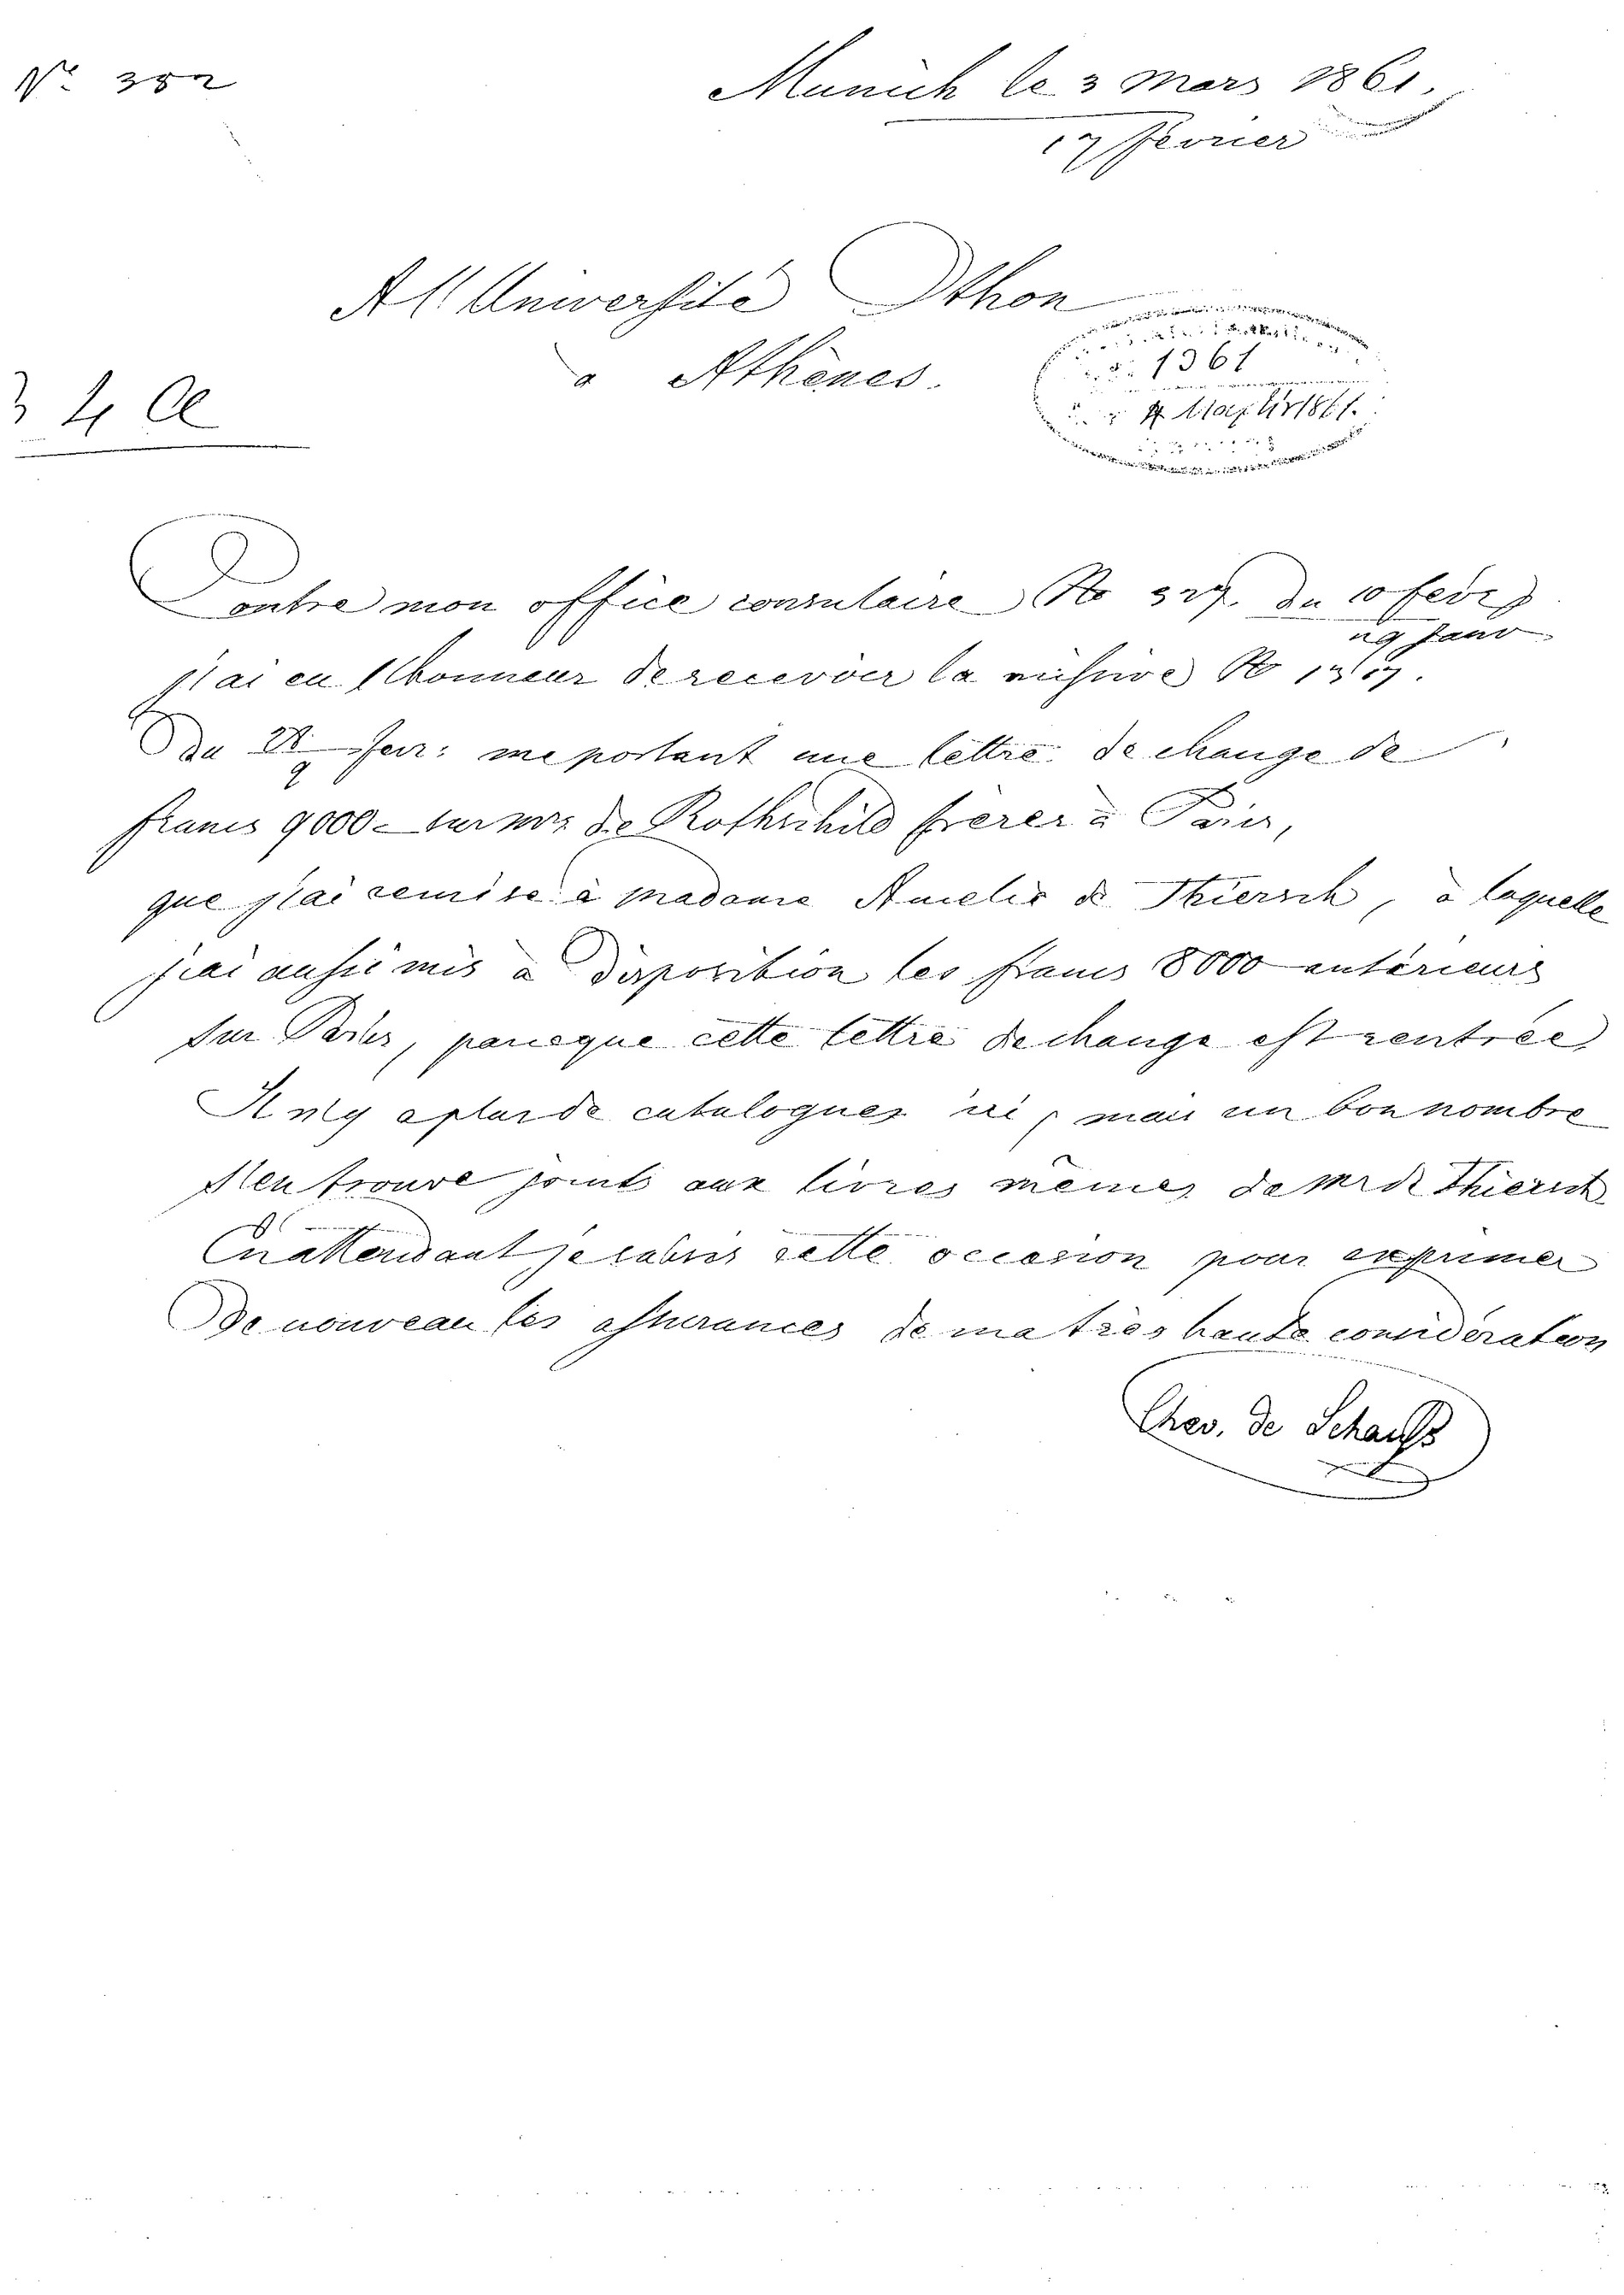 No 382
Munich le 3 mars 1861.
17 fevrier
A l'Université Othon
à Athènes.
1361
4 Μαρτίου 1861.
34 a
Contre mon office consulaire No 327. du 10 fevr
29 Janv
j'ai eu l'honneur de recevoir la missive No
Du 21 Fevr: me portant une lettre de change de
9
francs 9000 – sur mrs de Rothschild freres à Paris,
que j'ai remise à madame Amelie de Thiersch, à laquelle
j'ai aussi mis à disposition les francs 8000 antérieurs
sur Paris, parceque cette lettre de change est rentrée
Il n'y a plus de catalogues ici, mais un bon nombre
s'en trouve joint aux livres mêmes de Mr de Thiersch
En attendant je saisis cette occasion pour exprimer
De nouveau les assurances de ma très haute considération
Chev. de Schauss